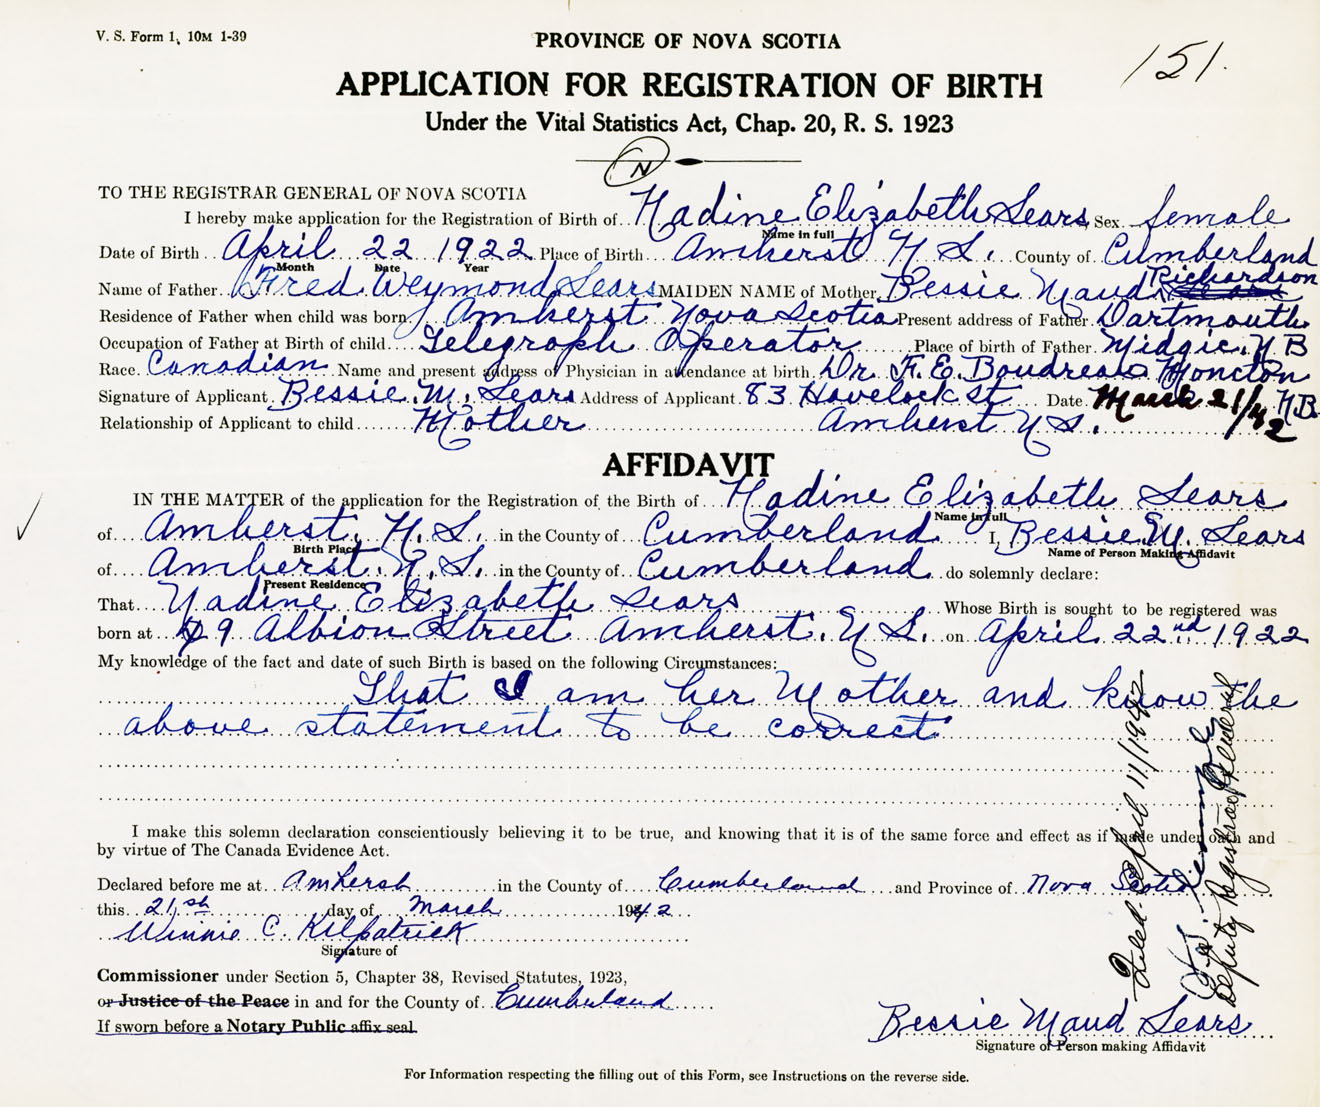 V. S. Form 1, 10M 1-39
PROVINCE OF NOVA SCOTIA
151.
APPLICATION FOR REGISTRATION OF BIRTH
Under the Vital Statistics Act, Chap. 20, R. S. 1923
N
TO THE REGISTRAR GENERAL OF NOVA SCOTIA
I hereby make application for the Registration of Birth of Nadine Elizabeth Sears Sex female
Name in full
Date of Birth April 22 1922 Place of Birth Amherst N S. County of Cumberland
Month Date Year
Richardson
Name of Father Fred Weymond Sears MAIDEN NAME of Mother Bessie Maud
Residence of Father when child was born Amherst Nova Scotia Present address of Father Dartmouth
Occupation of Father at Birth of child Telegraph Operator Place of birth of Father Midgic, N B
Race Canadian Name and present address of Physician in attendance at birth Dr F. E. Boudreau Moncton
Signature of Applicant Bessie M. Sears Address of Applicant 83 Havelock st Date March 21/42 N.B
Relationship of Applicant to child Mother Amherst N S.
AFFIDAVIT
IN THE MATTER of the application for the Registration of the Birth of Nadine Elizabeth Sears
Name in full
of Amherst, N. S. in the County of Cumberland I, Bessie M. Sears
Birth Place Name of Person Making Affidavit
of Amherst. N. S. in the County of Cumberland do solemnly declare:
Present Residence
That Nadine Elizabeth Sears Whose Birth is sought to be registered was
born at 29 Albion Street Amherst. N S. on April 22nd 1922
My knowledge of the fact and date of such Birth is based on the following Circumstances:
That I am her Mother and know the
above statement to be correct
I make this solemn declaration conscientiously believing it to be true, and knowing that it is of the same force and effect as if made under oath and
by virtue of The Canada Evidence Act.
Declared before me at Amherst in the County of Cumberland and Province of Nova Scotia
this 21st day of March 1942
Winnie C. Kilpatrick
Signature of
Commissioner under Section 5, Chapter 38, Revised Statutes, 1923,
or Justice of the Peace in and for the County of Cumberland
If sworn before a Notary Public affix seal.
Bessie Maud Sears
Signature of Person making Affidavit
For Information respecting the filling out of this Form, see Instructions on the reverse side.
Filed. April 11/1942
Deputy Registrar General